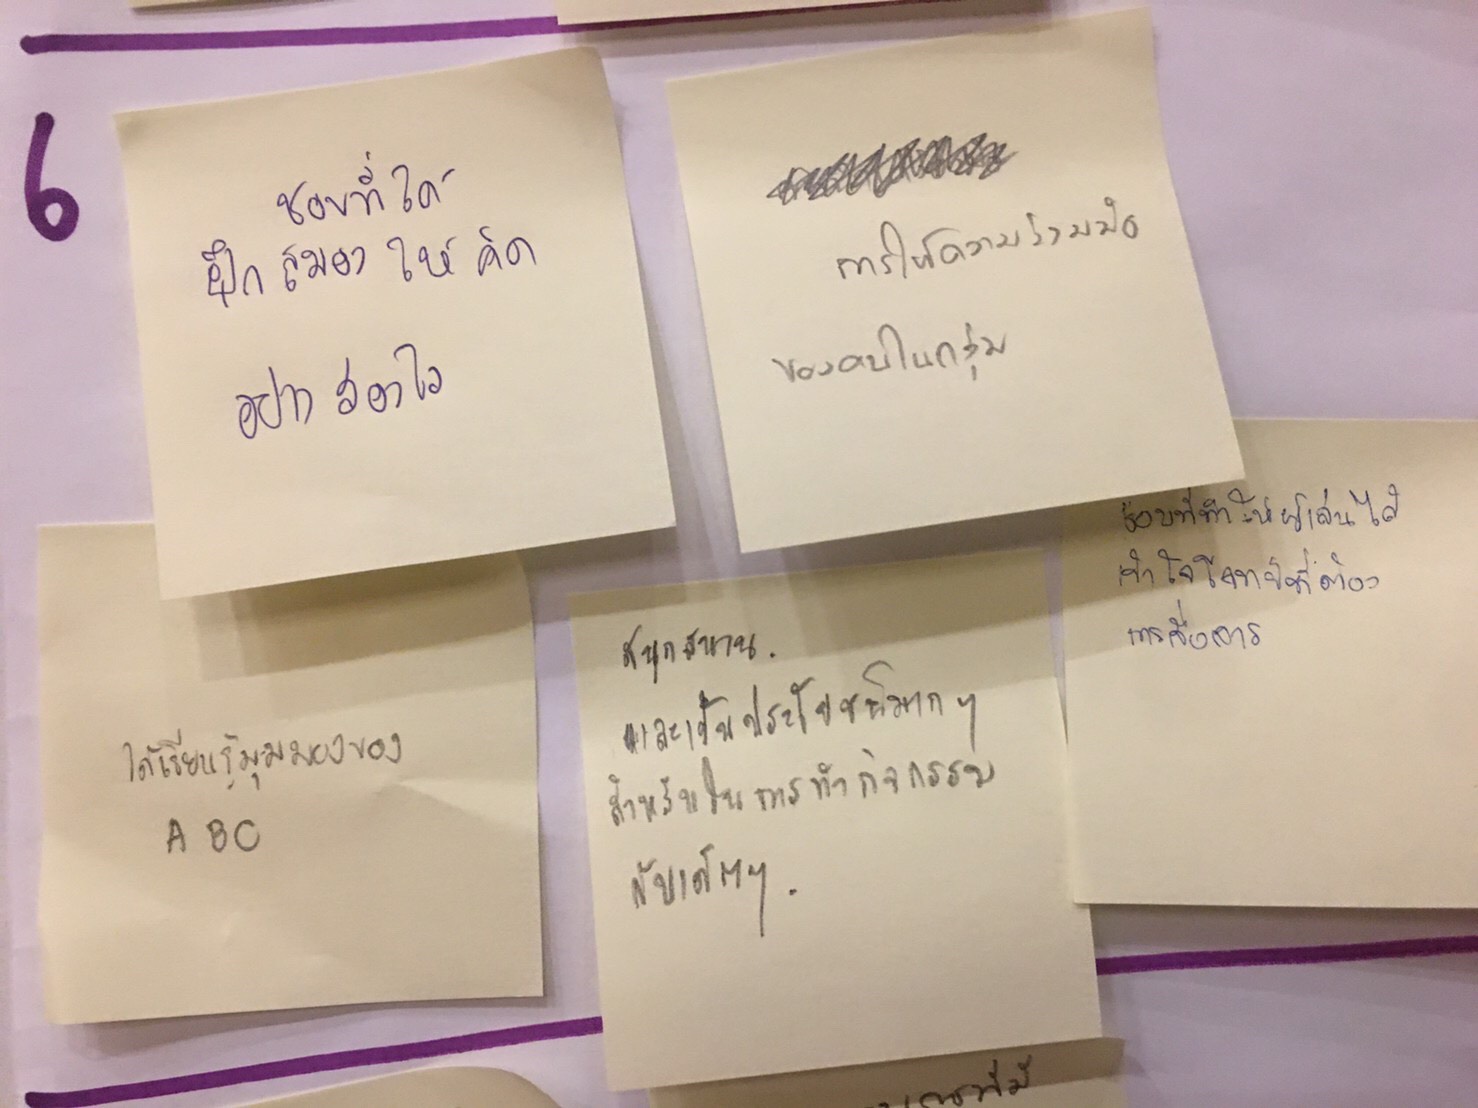 6
ชอบที่ได้
ฝึกสมองให้คิด
อย่าง
การให้ความร่วมมือ
ของคนในกลุ่ม
ชอบที่ทำให้ผู้เล่นได้
เข้าใจโจทย์ที่ต้อง
การสื่อสาร
ได้เรียนรู้มุมมองของ
A B C
สนุกสนาน.
และเป็นประโยชน์มากๆ
สำหรับในการทำกิจกรรม
กับเด็กๆ.